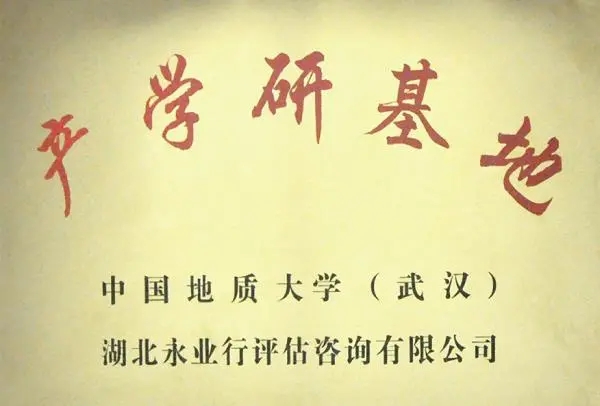 产学研基地
中国地质大学（武汉）
湖北永业行评估咨询有限公司